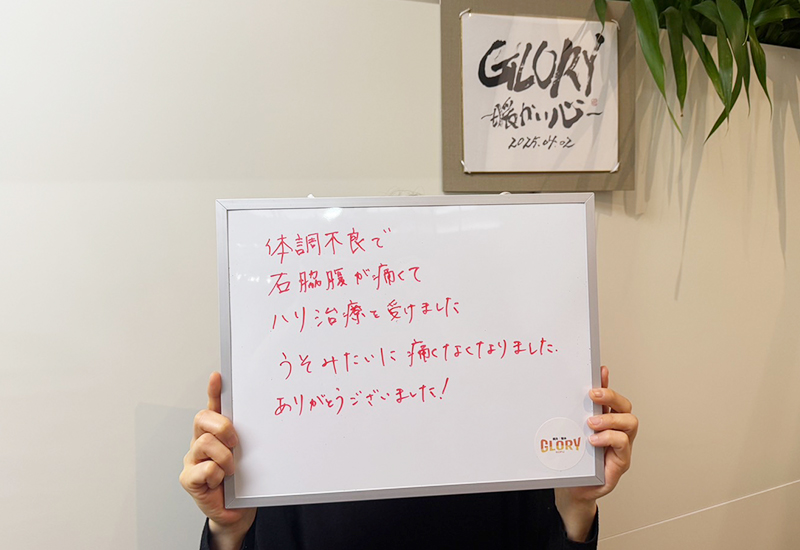 GLORY
〜暖かい心〜
2025.04.02
体調不良で
右脇腹が痛くて
ハリ治療を受けました
うそみたいに痛くなくなりました.
ありがとうございました!
GLORY